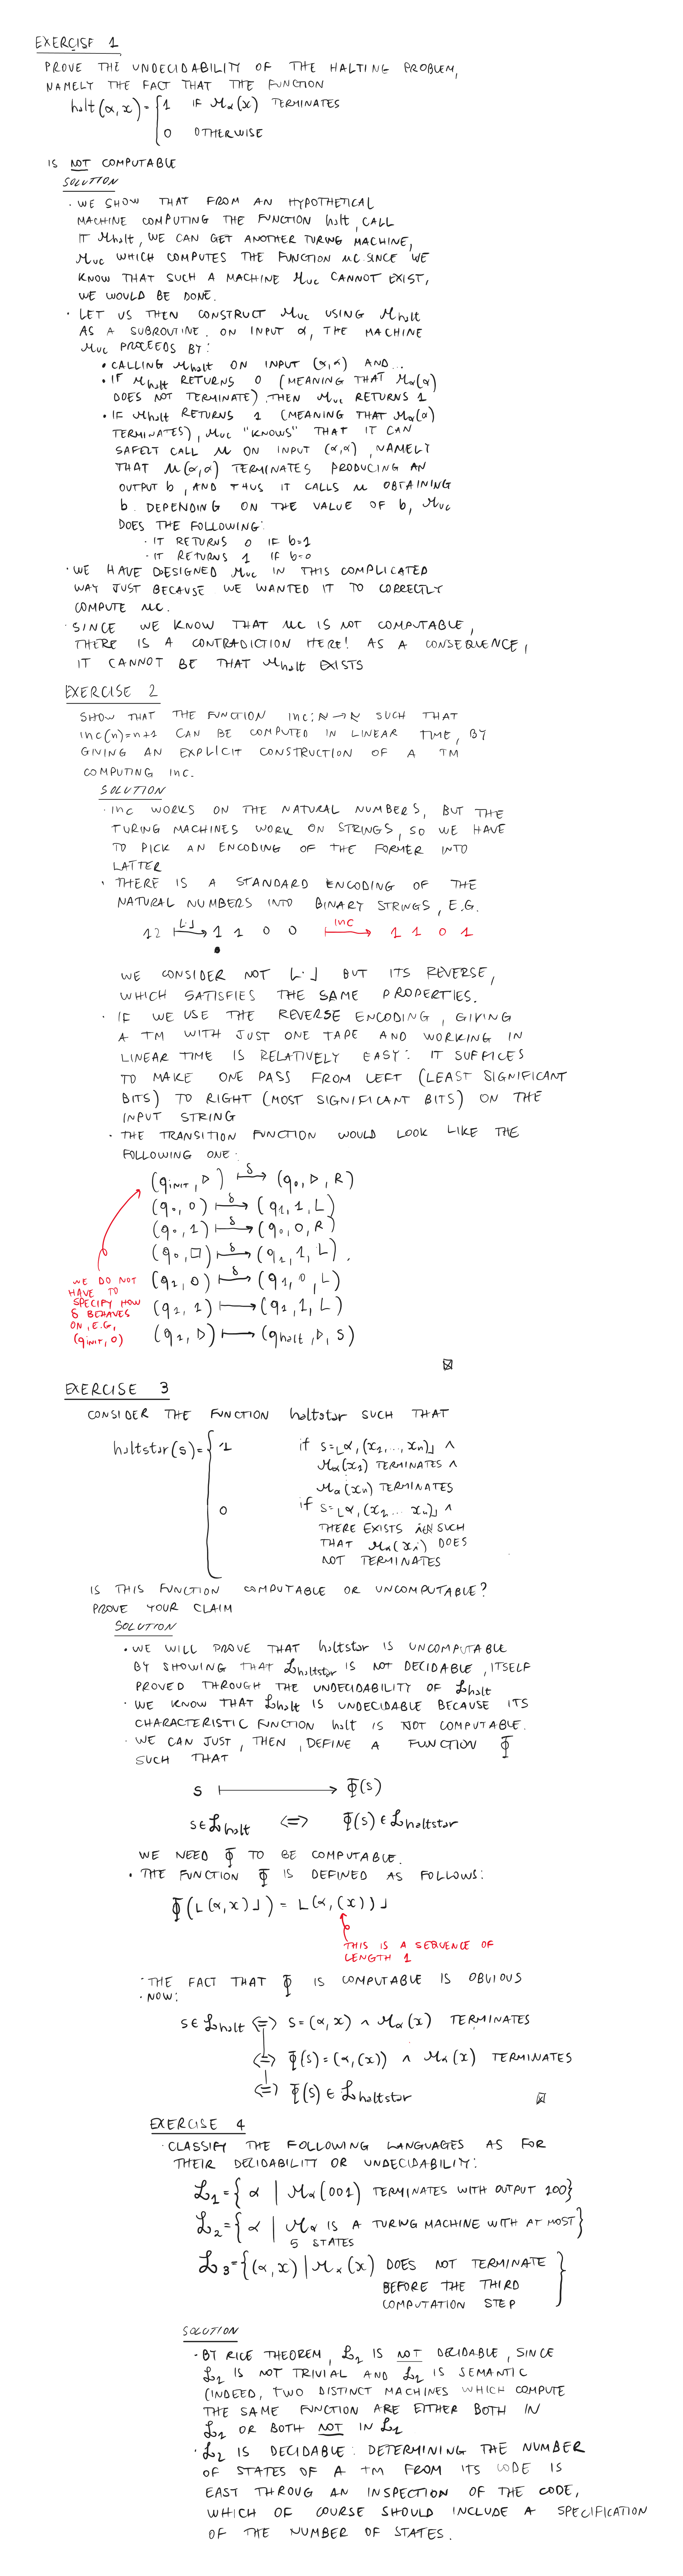 EXERCISE 1
PROVE THE UNDECIDABILITY OF THE HALTING PROBLEM,
NAMELY THE FACT THAT THE FUNCTION
halt(α,x)={1 IF Mα(x) TERMINATES
0 OTHERWISE
IS NOT COMPUTABLE
SOLUTION
· WE SHOW THAT FROM AN HYPOTHETICAL
MACHINE COMPUTING THE FUNCTION halt, CALL
IT Mhalt, WE CAN GET ANOTHER TURING MACHINE,
Muc WHICH COMPUTES THE FUNCTION uc. SINCE WE
KNOW THAT SUCH A MACHINE Muc CANNOT EXIST,
WE WOULD BE DONE.
· LET US THEN CONSTRUCT Muc USING Mhalt
AS A SUBROUTINE. ON INPUT α, THE MACHINE
Muc PROCEEDS BY:
• CALLING Mhalt ON INPUT (α,α) AND...
• IF Mhalt RETURNS 0 (MEANING THAT Mα(α)
DOES NOT TERMINATE) THEN Muc RETURNS 1
• IF Mhalt RETURNS 1 (MEANING THAT Mα(α)
TERMINATES), Muc "KNOWS" THAT IT CAN
SAFELY CALL U ON INPUT (α,α), NAMELY
THAT U(α,α) TERMINATES PRODUCING AN
OUTPUT b, AND THUS IT CALLS U OBTAINING
b. DEPENDING ON THE VALUE OF b, Muc
DOES THE FOLLOWING:
· IT RETURNS 0 IF b=1
· IT RETURNS 1 IF b=0
· WE HAVE DESIGNED Muc IN THIS COMPLICATED
WAY JUST BECAUSE WE WANTED IT TO CORRECTLY
COMPUTE uc.
· SINCE WE KNOW THAT uc IS NOT COMPUTABLE,
THERE IS A CONTRADICTION HERE! AS A CONSEQUENCE,
IT CANNOT BE THAT Mhalt EXISTS
EXERCISE 2
SHOW THAT THE FUNCTION inc: ℕ→ℕ SUCH THAT
inc(n)=n+1 CAN BE COMPUTED IN LINEAR TIME, BY
GIVING AN EXPLICIT CONSTRUCTION OF A TM
COMPUTING inc.
SOLUTION
· inc WORKS ON THE NATURAL NUMBERS, BUT THE
TURING MACHINES WORK ON STRINGS, SO WE HAVE
TO PICK AN ENCODING OF THE FORMER INTO
LATTER
· THERE IS A STANDARD ENCODING OF THE
NATURAL NUMBERS INTO BINARY STRINGS, E.G.
12 ⌊·⌋↦ 1 1 0 0 inc↦ 1 1 0 1
WE CONSIDER NOT ⌊·⌋ BUT ITS REVERSE,
WHICH SATISFIES THE SAME PROPERTIES.
· IF WE USE THE REVERSE ENCODING, GIVING
A TM WITH JUST ONE TAPE AND WORKING IN
LINEAR TIME IS RELATIVELY EASY: IT SUFFICES
TO MAKE ONE PASS FROM LEFT (LEAST SIGNIFICANT
BITS) TO RIGHT (MOST SIGNIFICANT BITS) ON THE
INPUT STRING
· THE TRANSITION FUNCTION WOULD LOOK LIKE THE
FOLLOWING ONE:
(qINIT, ▷) δ↦ (q0, ▷, R)
(q0, 0) δ↦ (q1, 1, L)
(q0, 1) δ↦ (q0, 0, R)
(q0, □) δ↦ (q1, 1, L).
(q1, 0) δ↦ (q1, 0, L)
(q1, 1) ↦ (q1, 1, L)
(q1, ▷) ↦ (qhalt, ▷, S)
WE DO NOT
HAVE TO
SPECIFY HOW
δ BEHAVES
ON, E.G.,
(qINIT, 0)
EXERCISE 3
CONSIDER THE FUNCTION haltstar SUCH THAT
haltstar(s)={1 if s=⌊α,(x1,...,xn)⌋ ∧
Mα(x1) TERMINATES ∧
⋮
Mα(xn) TERMINATES
0 if s=⌊α,(x1...xn)⌋ ∧
THERE EXISTS i∈N SUCH
THAT Mα(xi) DOES
NOT TERMINATES
IS THIS FUNCTION COMPUTABLE OR UNCOMPUTABLE?
PROVE YOUR CLAIM
SOLUTION
· WE WILL PROVE THAT haltstar IS UNCOMPUTABLE
BY SHOWING THAT ℒhaltstar IS NOT DECIDABLE, ITSELF
PROVED THROUGH THE UNDECIDABILITY OF ℒhalt
· WE KNOW THAT ℒhalt IS UNDECIDABLE BECAUSE ITS
CHARACTERISTIC FUNCTION halt IS NOT COMPUTABLE.
· WE CAN JUST, THEN, DEFINE A FUNCTION Φ
SUCH THAT
s ↦ Φ(s)
s∈ℒhalt <=> Φ(s)∈ℒhaltstar
WE NEED Φ TO BE COMPUTABLE.
· THE FUNCTION Φ IS DEFINED AS FOLLOWS:
Φ(⌊(α,x)⌋) = ⌊(α,(x))⌋
THIS IS A SEQUENCE OF
LENGTH 1
· THE FACT THAT Φ IS COMPUTABLE IS OBVIOUS
· NOW:
s∈ℒhalt <=> s=(α,x) ∧ Mα(x) TERMINATES
<=> Φ(s)=(α,(x)) ∧ Mα(x) TERMINATES
<=> Φ(s)∈ℒhaltstar
EXERCISE 4
· CLASSIFY THE FOLLOWING LANGUAGES AS FOR
THEIR DECIDABILITY OR UNDECIDABILITY:
ℒ1={α | Mα(001) TERMINATES WITH OUTPUT 100}
ℒ2={α | Mα IS A TURING MACHINE WITH AT MOST}
5 STATES
ℒ3={(α,x) | Mα(x) DOES NOT TERMINATE
BEFORE THE THIRD
COMPUTATION STEP}
SOLUTION
· BY RICE THEOREM, ℒ1 IS NOT DECIDABLE, SINCE
ℒ1 IS NOT TRIVIAL AND ℒ1 IS SEMANTIC
(INDEED, TWO DISTINCT MACHINES WHICH COMPUTE
THE SAME FUNCTION ARE EITHER BOTH IN
ℒ1 OR BOTH NOT IN ℒ1
· ℒ2 IS DECIDABLE: DETERMINING THE NUMBER
OF STATES OF A TM FROM ITS CODE IS
EAST THROUG AN INSPECTION OF THE CODE,
WHICH OF COURSE SHOULD INCLUDE A SPECIFICATION
OF THE NUMBER OF STATES.